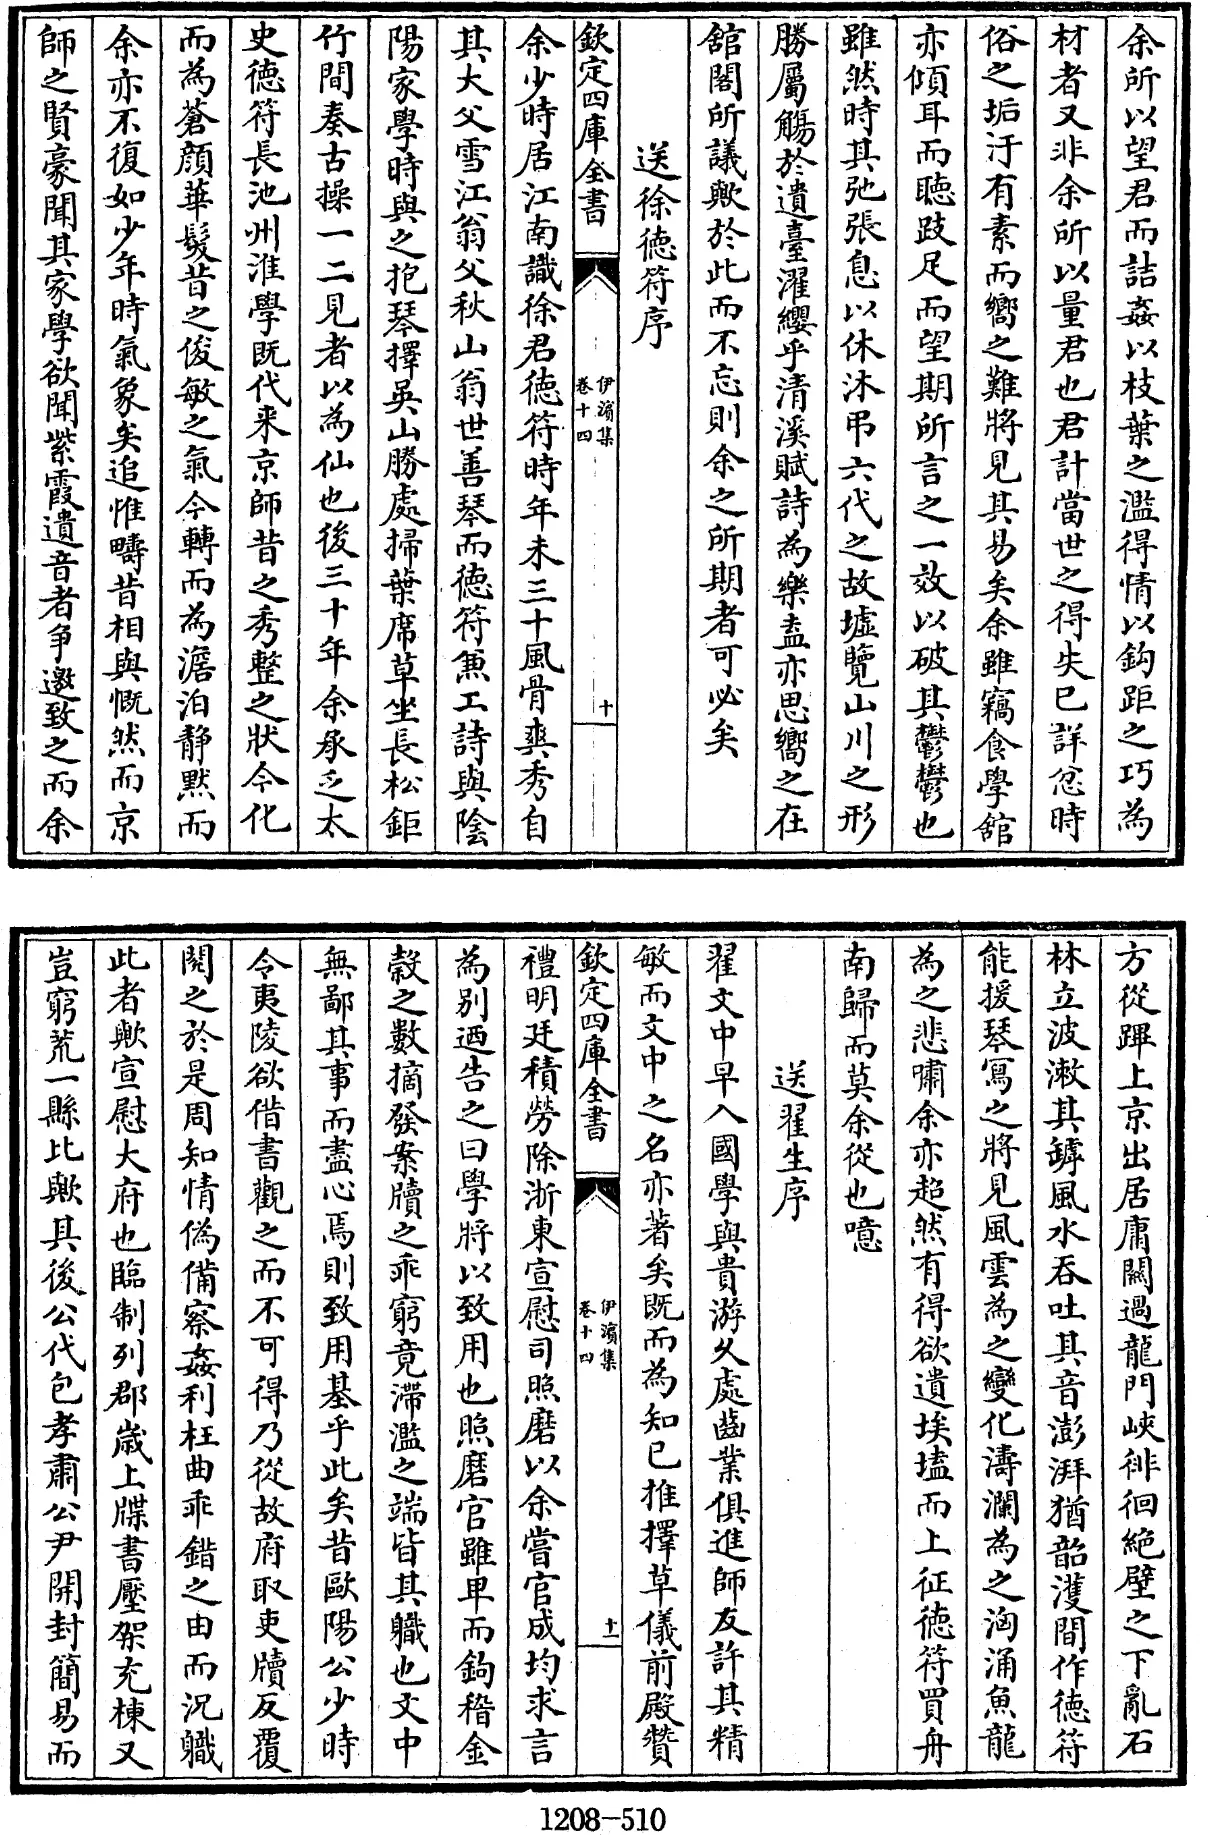 余所以望君而詰姦以枝葉之濫得情以鈎距之巧為
材者又非余所以量君也君計當世之得失已詳忽時
俗之垢汙有素而嚮之難將見其易矣余雖竊食學舘
亦傾耳而聴跂足而望期所言之一效以破其鬱鬱也
雖然時其弛張息以休沐弔六代之故墟覽山川之形
勝屬觴於遺臺濯纓乎清溪賦詩為樂盍亦思嚮之在
舘閣所議歟於此而不忘則余之所期者可必矣
送徐徳符序
欽定四庫全書
伊濱集
卷十四
十
余少時居江南識徐君徳符時年未三十風骨爽秀自
其大父雪江翁父秋山翁世善琴而徳符兼工詩與陰
陽家學時與之抱琴擇吳山勝處掃葉席草坐長松鉅
竹間奏古操一二見者以為仙也後三十年余承乏太
史徳符長池州淮學既代来京師昔之秀整之狀今化
而為蒼顔華髮昔之俊敏之氣今轉而為澹泊静黙而
余亦不復如少年時氣象矣追惟疇昔相與慨然而京
師之賢豪聞其家學欲聞紫霞遺音者争邀致之而余
方從蹕上京出居庸闗過龍門峽徘徊絶壁之下亂石
林立波漱其罅風水吞吐其音澎湃猶韶濩間作徳符
能援琴寫之將見風雲為之變化濤瀾為之洶涌魚龍
為之悲嘯余亦超然有得欲遺埃壒而上征徳符買舟
南歸而莫余從也噫
送翟生序
翟文中早入國學與貴游久處齒業俱進師友許其精
敏而文中之名亦著矣既而為知己推擇草儀前殿贊
欽定四庫全書
伊濱集
卷十四
十一
禮明廷積勞除浙東宣慰司照磨以余嘗官成均求言
為别迺告之曰學將以致用也照磨官雖卑而鉤稽金
穀之數摘發案牘之乖窮竟滯濫之端皆其職也文中
無鄙其事而盡心焉則致用基乎此矣昔歐陽公少時
令夷陵欲借書觀之而不可得乃從故府取吏牘反覆
閱之於是周知情偽備察姦利枉曲乖錯之由而況職
此者歟宣慰大府也臨制列郡嵗上牒書壓架充棟又
豈窮荒一縣比歟其後公代包孝肅公尹開封簡易而
1208-510